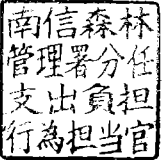 南信森林
管理署分任
支出負担
行為担当官